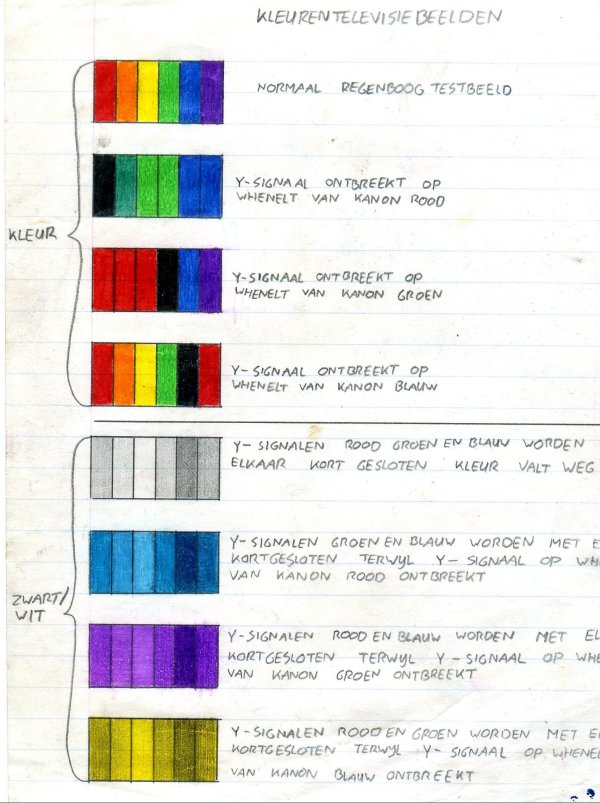 KLEURENTELEVISIEBEELDEN
NORMAAL REGENBOOG TESTBEELD
Y-SIGNAAL ONTBREEKT OP
WHENELT VAN KANON ROOD
KLEUR
Y-SIGNAAL ONTBREEKT OP
WHENELT VAN KANON GROEN
Y-SIGNAAL ONTBREEKT OP
WHENELT VAN KANON BLAUW
Y-SIGNALEN ROOD GROEN EN BLAUW WORDEN
ELKAAR KORT GESLOTEN KLEUR VALT WEG
Y-SIGNALEN GROEN EN BLAUW WORDEN MET E
KORTGESLOTEN TERWYL Y-SIGNAAL OP WH
VAN KANON ROOD ONTBREEKT
ZWART/
WIT
Y-SIGNALEN ROOD EN BLAUW WORDEN MET EL
KORTGESLOTEN TERWYL Y-SIGNAAL OP WHE
VAN KANON GROEN ONTBREEKT
Y-SIGNALEN ROOD EN GROEN WORDEN MET E
KORTGESLOTEN TERWYL Y-SIGNAAL OP WHENE
VAN KANON BLAUW ONTBREEKT